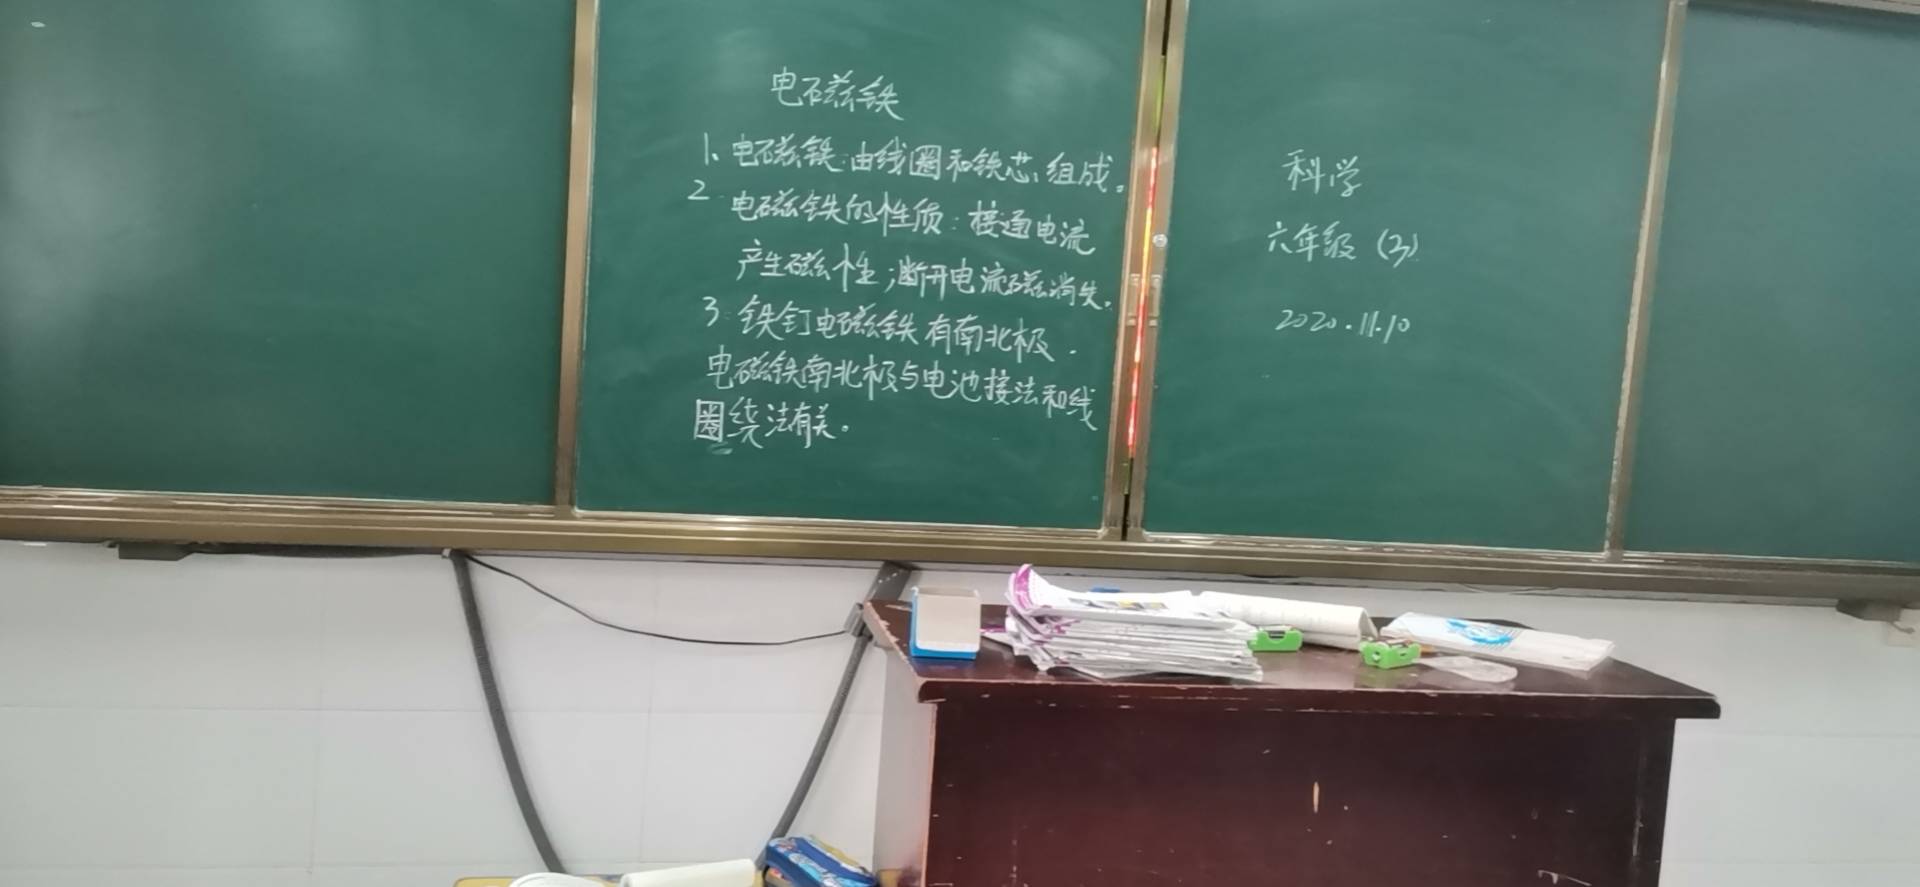 电磁铁
1、电磁铁:由线圈和铁芯组成。
2 电磁铁的性质:接通电流
产生磁性;断开电流磁消失.
3 铁钉电磁铁有南北极.
电磁铁南北极与电池接法和线
圈绕法有关。
科学
六年级(3)
2020.11.10